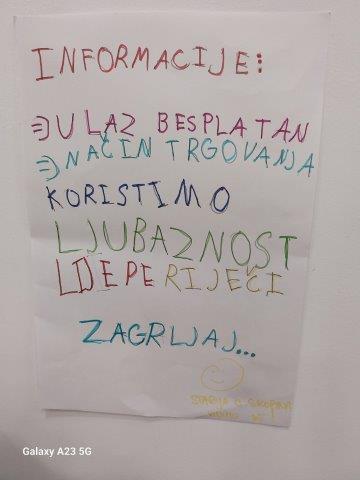 INFORMACIJE:
=> ULAZ BESPLATAN
=> NAČIN TRGOVANJA
KORISTIMO
LJUBAZNOST
LIJEPE RIJEČI
ZAGRLJAJ...
STARIJA O. SKUPINA
Galaxy A23 5G